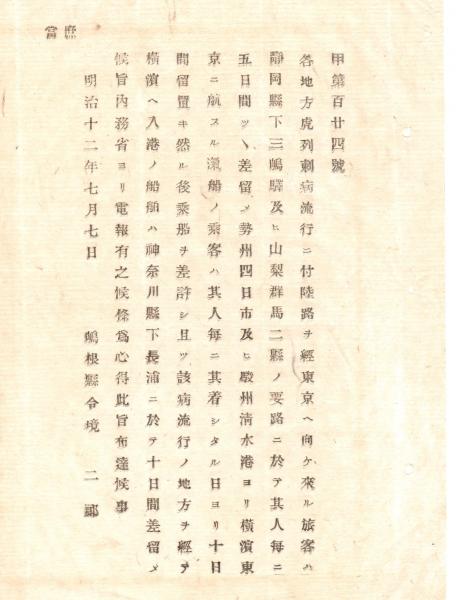 甲第百廿四號
各地方虎列刺病流行ニ付陸路ヲ經東京ヘ向ケ來ル旅客ハ
靜岡縣下三嶋驛及ヒ山梨群馬二縣ノ要路ニ於テ其人每ニ
五日間ツヽ差留メ勢州四日市及ヒ駿州淸水港ヨリ橫濱東
京ニ航スル滊船ノ乘客ハ其人每ニ其着シタル日ヨリ十日
間留置キ然ル後乘船ヲ差許シ且ツ該病流行ノ地方ヲ經テ
橫濱ヘ入港ノ船舶ハ神奈川縣下長浦ニ於テ十日間差留メ
候旨內務省ヨリ電報有之候條爲心得此旨布達候事
明治十二年七月七日　嶋根縣令境　二郞
庶當